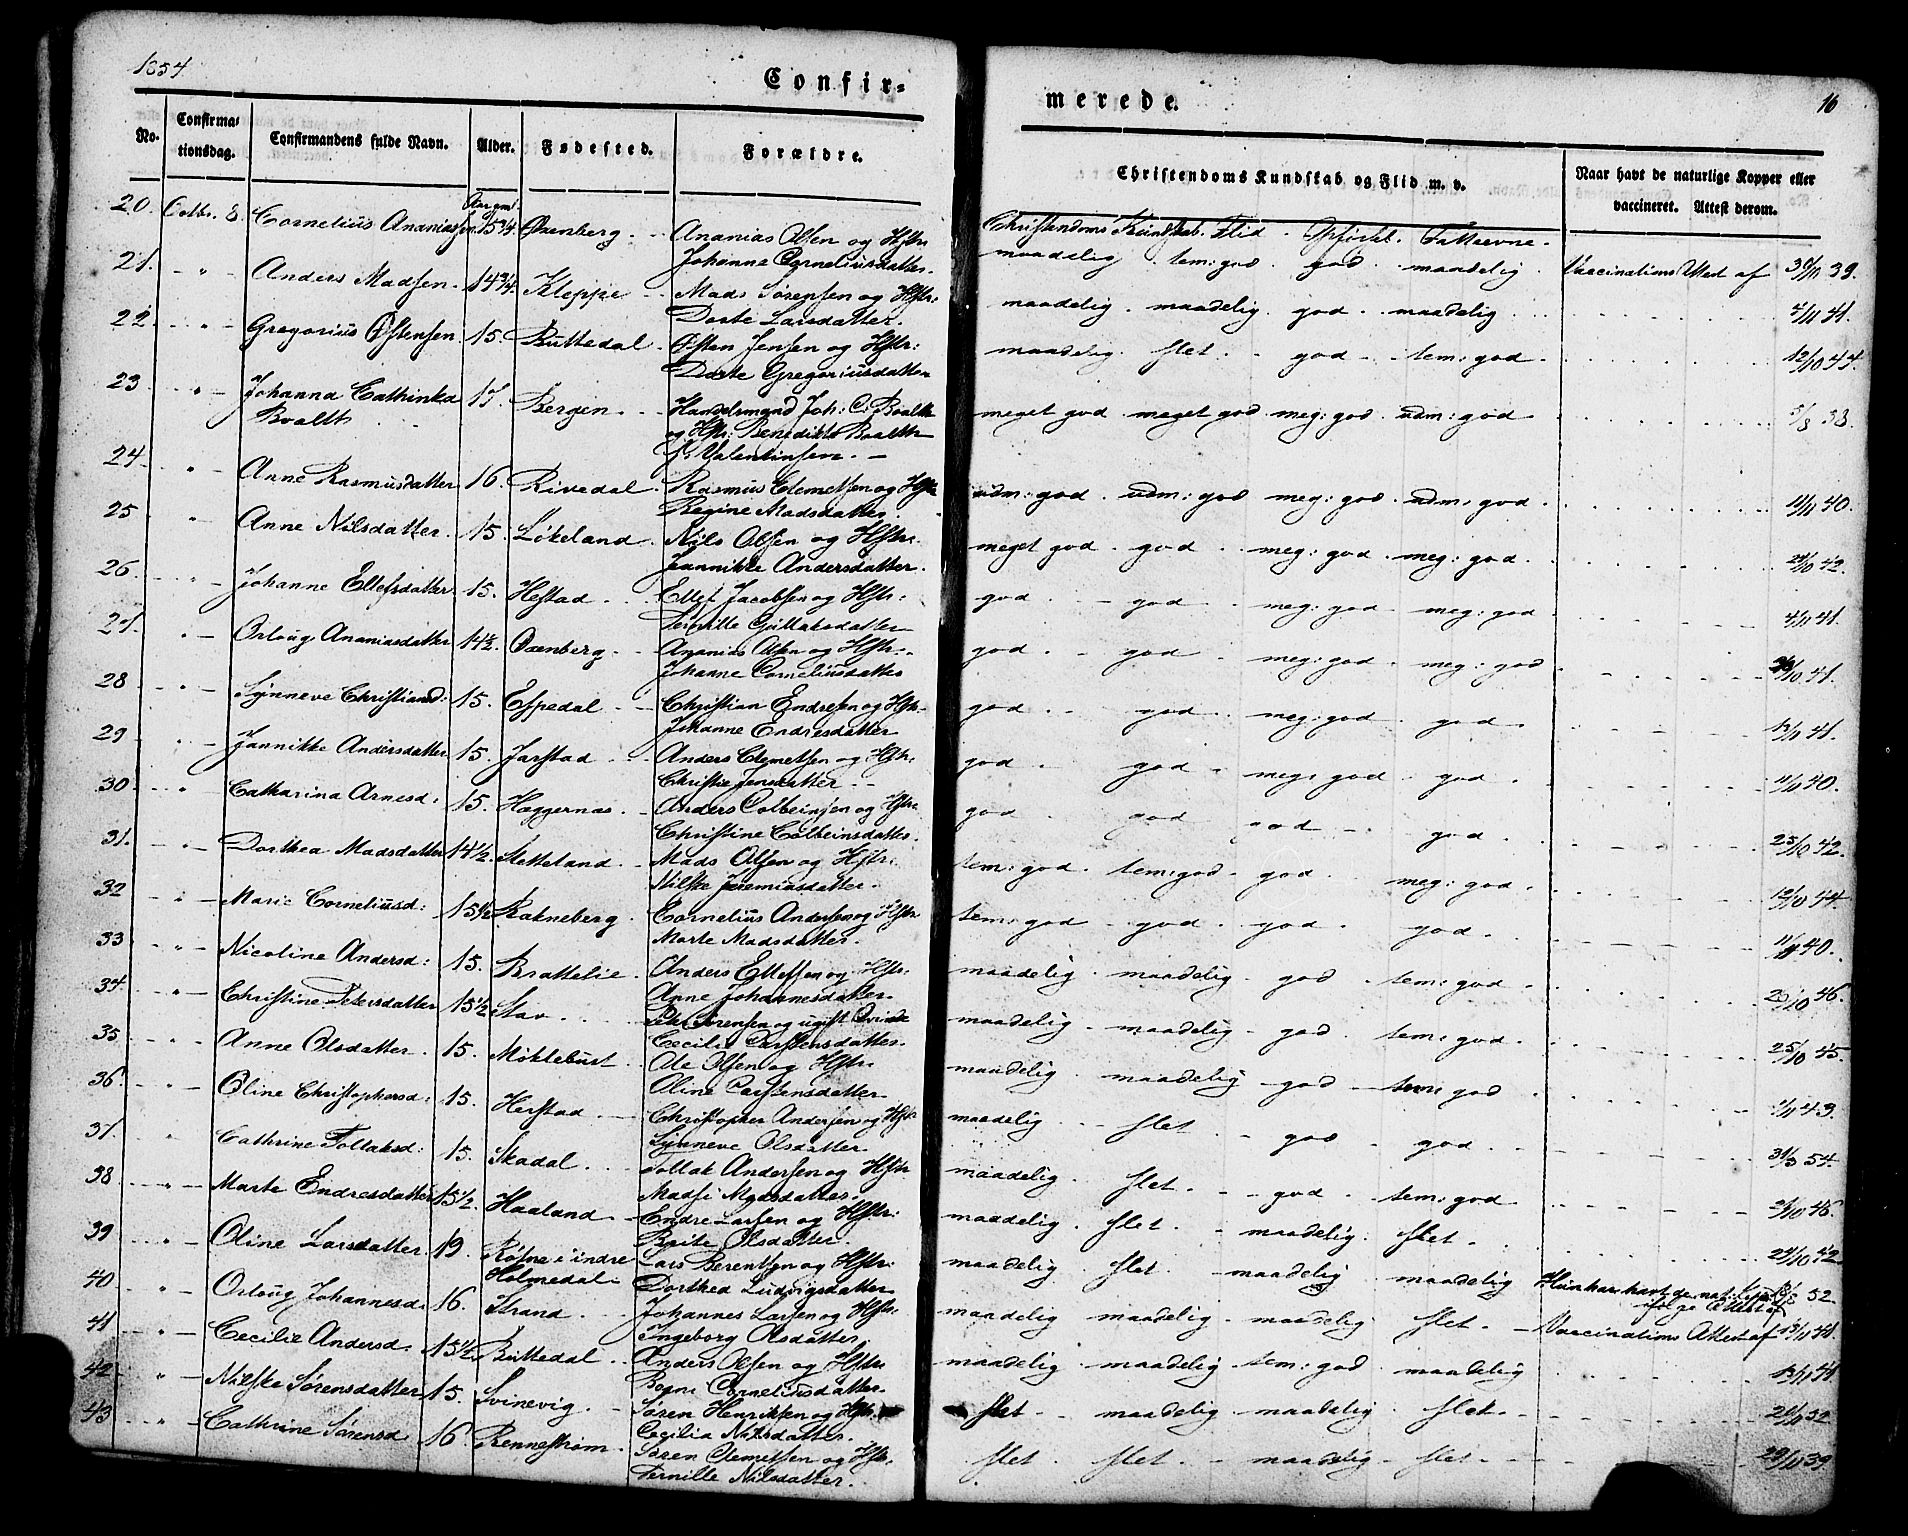 1854
Confir-
merede.
16
No.
Confirma-
tionsdag.
Confirmandens fulde Navn.
Alder.
Fødested.
Forældre.
Christendoms Kundskab og Flid m. v.
Naar havt de naturlige Kopper eller
vaccineret. Attest derom.
Christendoms Kundskab. Flid
20. Octbr. 8. Cornelius Ananiassen 15 3/4. Oxenberg. Ananias Olsen og Hstr:
Johanne Corneliusdatter.
maadelig. tem: god. god. maadelig. Vaccinations Attest af 39.
21. " Anders Madsen. 14 3/4. Kleppe Mads Sørensen og Hstr:
Dorte Larsdatter.
maadelig. maadelig. god. maadelig. 4/11 41.
22. " Gregorius Østensen. 15. Buttedal. Østen Jensen og Hstr:
Dorte Gregoriusdatter
maadelig. slet. god. tem: god. 12/10 44.
23 " Johanna Cathinka 17. Bergen. Handelsmand Joh: C: Boalth
Boalth og Hstr: Benedikte Boalth
f. Valentinsen.
meget god meget god meg: god. udm: god. 5/8 38.
24. " Anne Rasmusdatter 16. Rivedal. Rasmus Clemetsen og Hstr
Regine Madsdatter.
udm: god. udm: god meg: god. udm: god. 11/11 40.
25 " Anne Nilsdatter. 15. Løkeland. Nils Olsen og Hstr.
Jannikke Andersdatter.
meget god. god. meg: god. meg: god. 42.
26. " Johanne Ellefsdatter 15. Hestad. Ellef Jacobsen og Hstr:
Pernille Guttaksdatter
god. god. meg: god meg: god 4/11 41.
27. " Orloug Ananiasdatter 14 1/2. Oxenberg. Ananias Olsen og Hstr.
Johanne Corneliusdatter
god. god meg: god. meg: god 41.
28 " Synneve Christiansd: 15. Espedal Christian Endresen og Hstr.
Johanne Endresdatter
god. god. meg: god. god. 41.
29 " Jannikke Andersdatter 15. Jarstad Anders Clemetsen og Hstr.
Christie Jensdatter
god god meg: god god 11/11 40.
30 " Catharina Arnesd: 15. Haggernas. Anders Colbeinsen og Hstr.
Christine Colbeinsdatter.
god god god god. 25/10 42.
31. " Dorthea Madsdatter 14 1/2. Stetteland. Mads Olsen og Hstr:
Nilske Jeremiasdatter.
tem: god. tem: god. god. meg: god. 12/10 44.
32 " Marie Corneliusd: 15 1/2 Rakneberg. Cornelius Andersen og Hstr
Marte Madsdatter.
tem: god god. god. god. 40.
33. " Nicoline Andersd: 15. Brattelie. Anders Ellefsen og Hstr:
Anne Johannesdatter.
maadelig. maadelig. god tem: god. 46.
34. " Christine Petersdatter 15 1/2 Stav. Peter Sørensen og ugift Qvinde
Cecilie Carstensdatter.
maadelig. maadelig god tem: god. 25/10 45.
35 " Anne Olsdatter. 15. Møklebust. Ole Olsen og Hstr:
Oline Carstensdatter.
maadelig. maadelig god tem: god 43.
36. " Oline Christophersd: 15. Herstad. Christopher Andersen og Hstr
Synneve Olsdatter.
maadelig. slet. god god 31/3 54.
37. " Cathrine Tollaksd: 15. Skadal. Tollak Andersen og Hstr
Madsi Madsdatter.
maadelig. slet. god. tem: god. 46.
38 " Marte Endresdatter 15 1/2. Haaland. Endre Larsen og Hstr:
Brite Olsdatter.
maadelig. slet. maadelig. slet. 42.
39 " Oline Larsdatter. 19. i indre Lars Berentsen og Hstr:
Holmedal. Dorthea Ludvigsdatter
maadelig slet. maadelig maadelig Hun har havt de nat: 52.
ifølge Attest af
40. " Orloug Johannesd: 16. Strand. Johannes Larsen og Hstr:
Ingeborg Olsdatter.
maadelig maadelig. maadelig. slet. Vaccinations Attest af 13/11 41.
41 " Cecilie Andersd. 15 1/2. Buttedal. Anders Olsen og Hstr
Corneliusdatter.
maadelig maadelig tem: god. maadelig 13/11 41.
42 " Nilske Sørensdatter 15. Svinevig. Søren Henriksen og Hstr.
Cecilia Nilsdatter.
slet. maadelig maadelig slet.
43 " Cathrine Sørensd. 16 Rennestrøm. Søren Clemetsen og Hstr.
Pernille Nilsdatter.
slet. slet. maadelig slet 39.